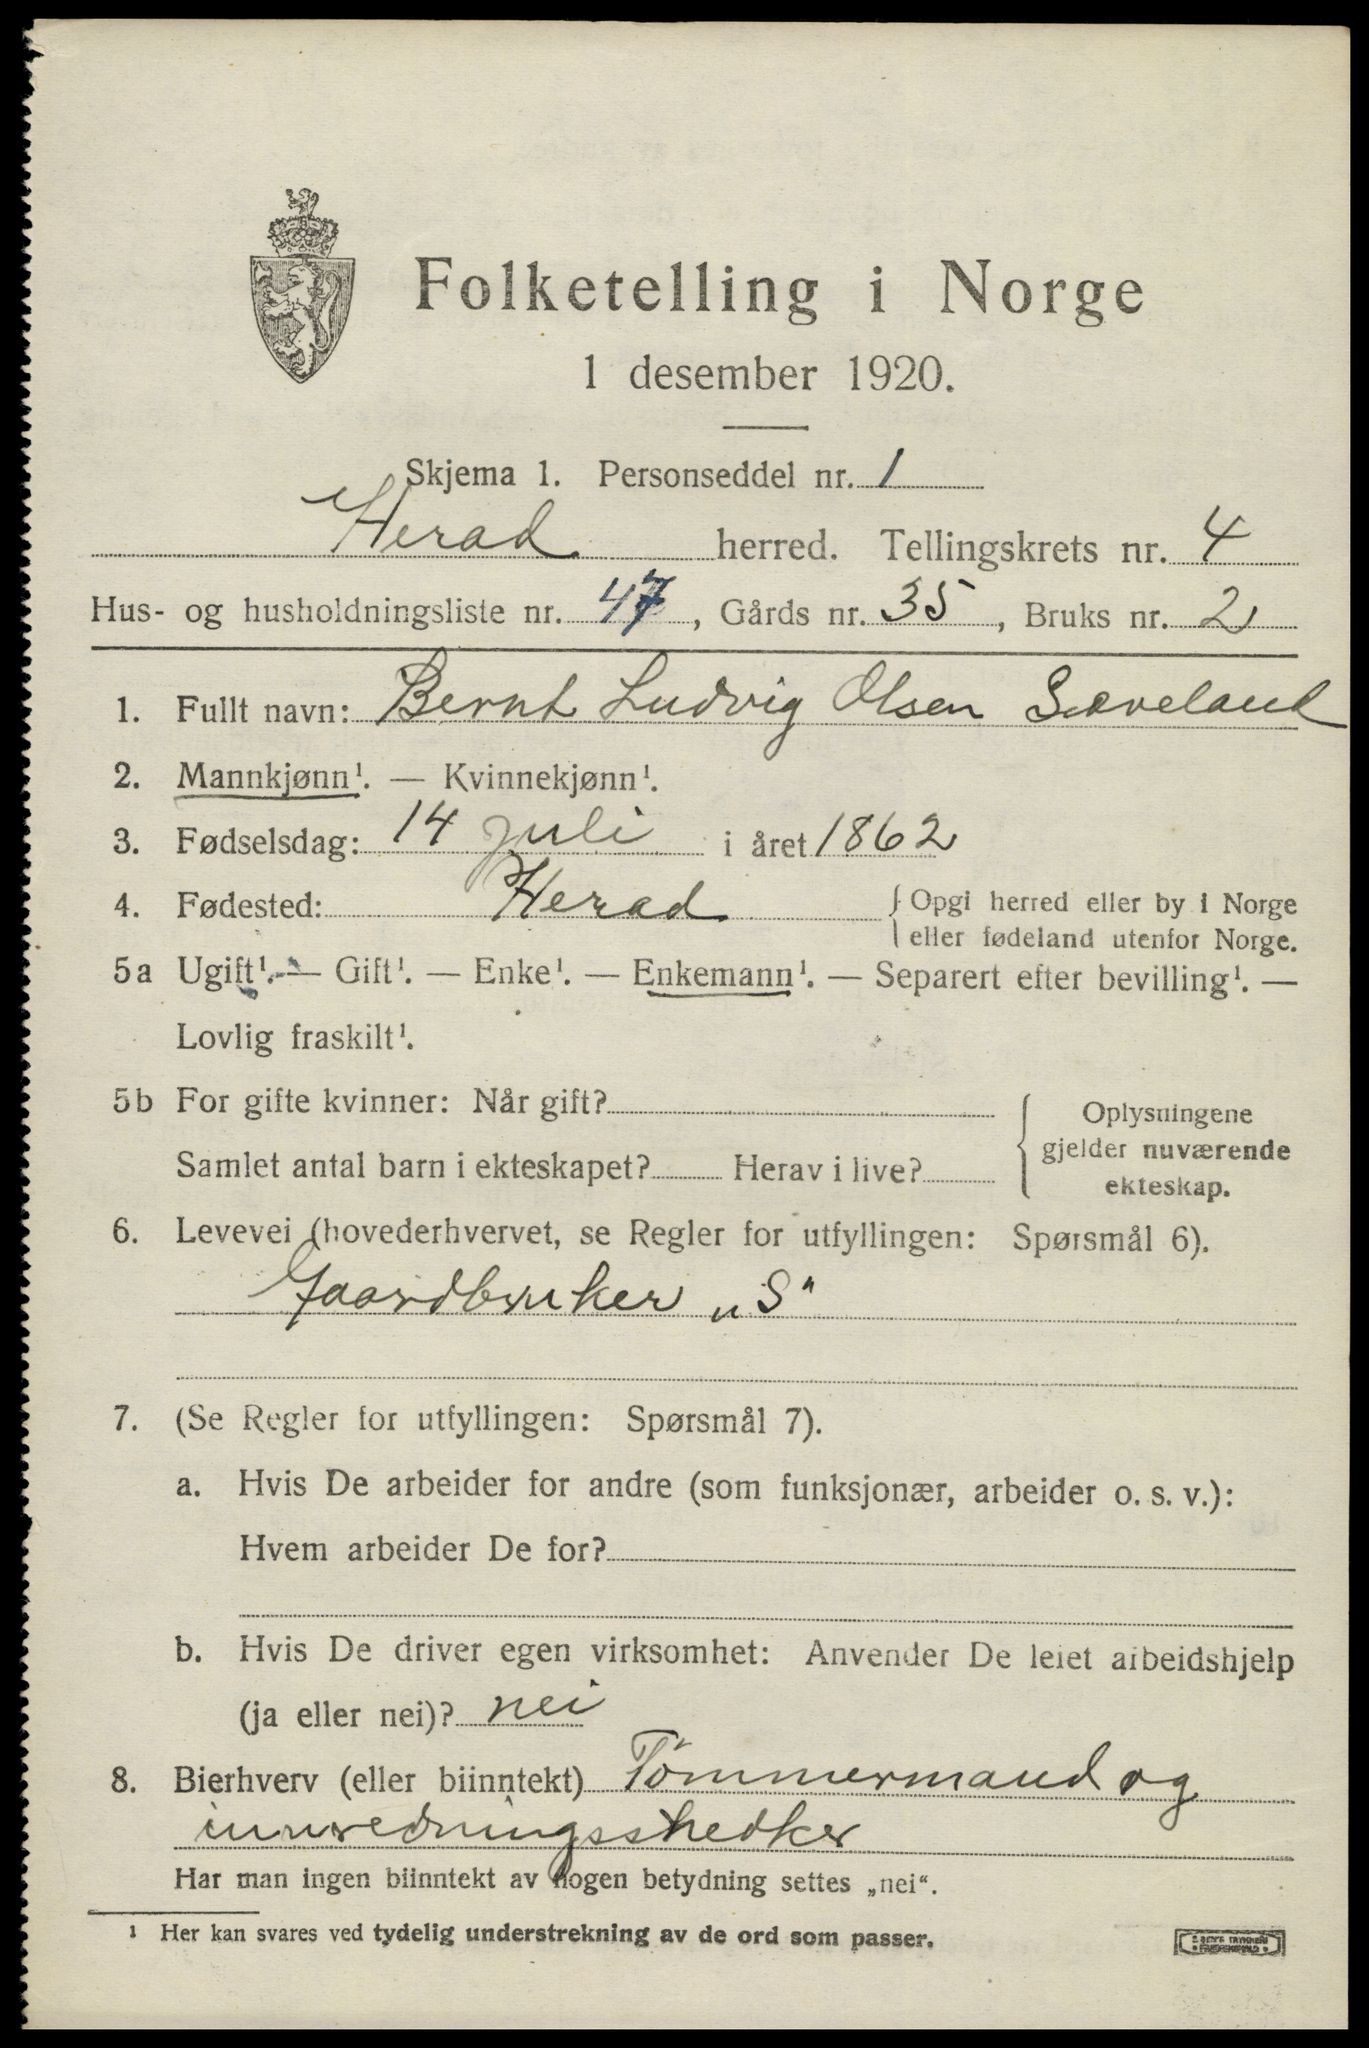 Folketelling i Norge
1 desember 1920.
Skjema 1. Personseddel nr. 1
Herad herred. Tellingskrets nr. 4
Hus- og husholdningsliste nr. 47, Gårds nr. 35, Bruks nr. 2
1. Fullt navn: Bernt Ludvig Olsen Sæveland
2. Mannkjønn¹. — Kvinnekjønn¹.
3. Fødselsdag: 14 juli i året 1862
4. Fødested: Herad { Opgi herred eller by i Norge
eller fødeland utenfor Norge.
5a Ugift¹. — Gift¹. — Enke¹. — Enkemann¹. — Separert efter bevilling¹. —
Lovlig fraskilt¹.
5b For gifte kvinner: Når gift?
Samlet antal barn i ekteskapet? Herav i live?
Oplysningene
gjelder nuværende
ekteskap.
6. Levevei (hovederhvervet, se Regler for utfyllingen: Spørsmål 6).
Gaardbruker „S"
7. (Se Regler for utfyllingen: Spørsmål 7).
a. Hvis De arbeider for andre (som funksjonær, arbeider o. s. v.):
Hvem arbeider De for?
b. Hvis De driver egen virksomhet: Anvender De leiet arbeidshjelp
(ja eller nei)? nei
8. Bierhverv (eller biinntekt) Tömmermand og
innredningssnedker
Har man ingen biinntekt av nogen betydning settes „nei".
¹ Her kan svares ved tydelig understrekning av de ord som passer.